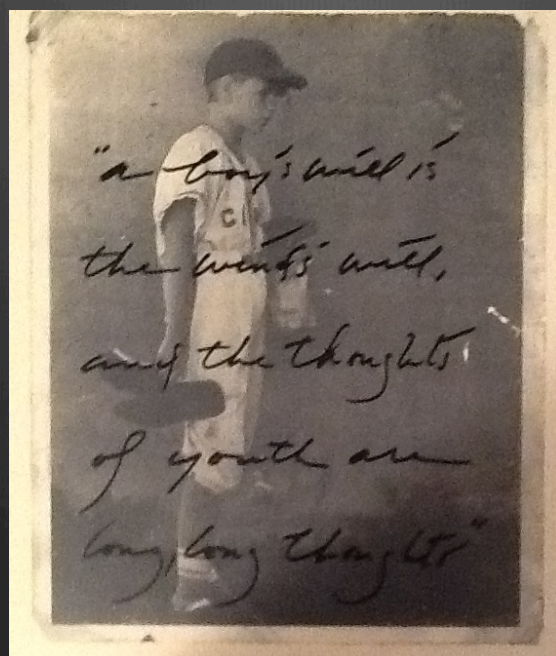 "a boy's will is
the wind's will,
and the thoughts
of youth are
long, long thoughts"
C